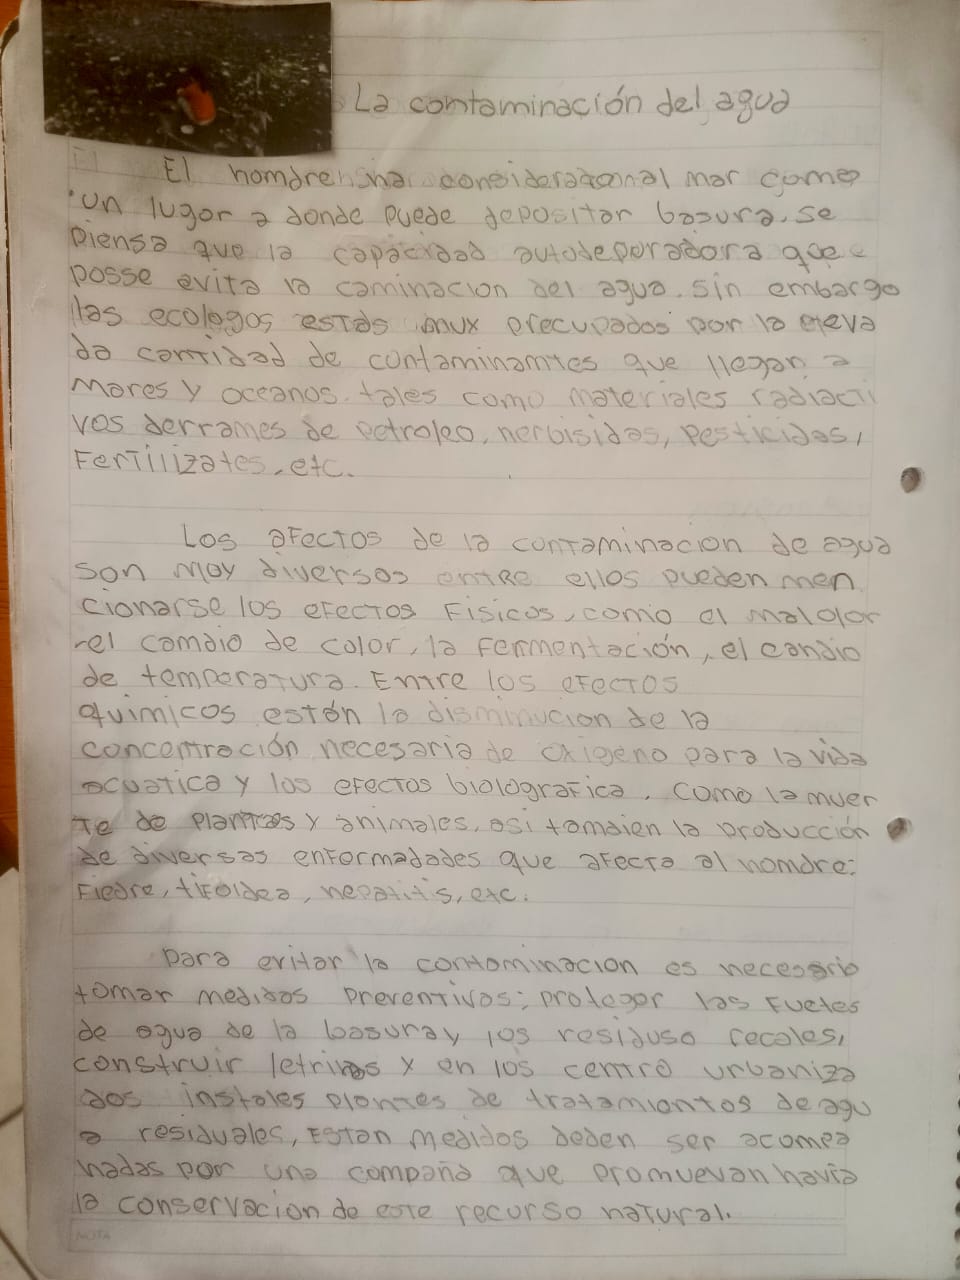 La contaminación del agua
El hombre ha considerado al mar como
un lugar a donde puede depositar basura, se
piensa que la capacidad autodeporadora que
posse evita la caminacion del agua. sin embargo
las ecologos estas mux precupados por la eleva
da cantidad de contaminantes que llegan a
Mares y oceanos. tales como materiales radiacti
vos derrames de petroleo, herbisidas, pesticidas,
Fertilizates, etc.
Los afectos de la contaminacion de agua
son moy diversos entre ellos pueden men
cionarse los efectos Fisicos, como el mal olor
el cambio de color, la fermentación, el canbio
de temperatura. Entre los efectos
quimicos están la disminucion de la
concentración necesaria de oxigeno para la vida
acuatica y los efectos biolografica. como la muer
te de plantas y animales, asi tambien la producción
de diversas enformadades que afecta al hombre:
Fiedre, tifoidea, hepatitis, etc.
Para evitar la contaminacion es necesario
tomar medidas preventivas: proteger las Fuetes
de agua de la basura y los residuso fecales,
construir letrinas y en los centro urbaniza
dos instales plantes de tratamiontos de agu
a residuales, Estan medidas deben ser acompa
ñadas por una compaña que promuevan havia
la conservacion de este recurso natural.
NOTA